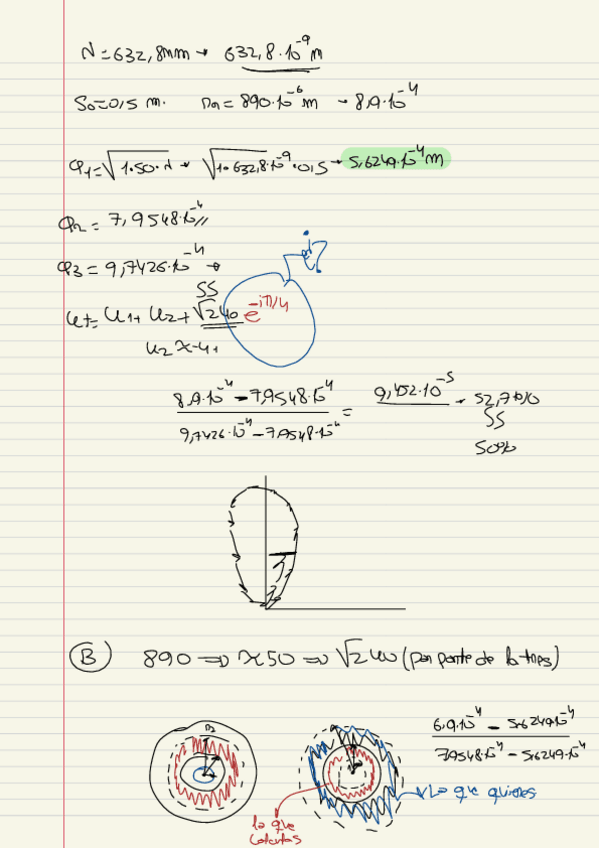 λ = 632,8nm → 632,8·10⁻⁹ m
S₀ = 0,5 m. r₁ = 890·10⁻⁶ m → 8,9·10⁻⁴
φ₁ = √1·S₀·λ → √1·632,8·10⁻⁹·0,5 → 5,6249·10⁻⁴ m
φ₂ = 7,9548·10⁻⁴ //
φ₃ = 9,7426·10⁻⁴ →
SS
Ut = U₁ + U₂ + √2 U₀ e^(-iπ/4)
U₂ ≈ -U₁
8,9·10⁻⁴ - 7,9548·10⁻⁴
9,7426·10⁻⁴ - 7,9548·10⁻⁴
=
9,452·10⁻⁵
→ 52,7%
SS
50%
B 890 ⇒ ≈ 50 ⇒ √2 U₀ (por parte de la tres)
6,9·10⁻⁴ - 5,6249·10⁻⁴
7,9548·10⁻⁴ - 5,6249·10⁻⁴
Lo que quieres
lo que
calculas